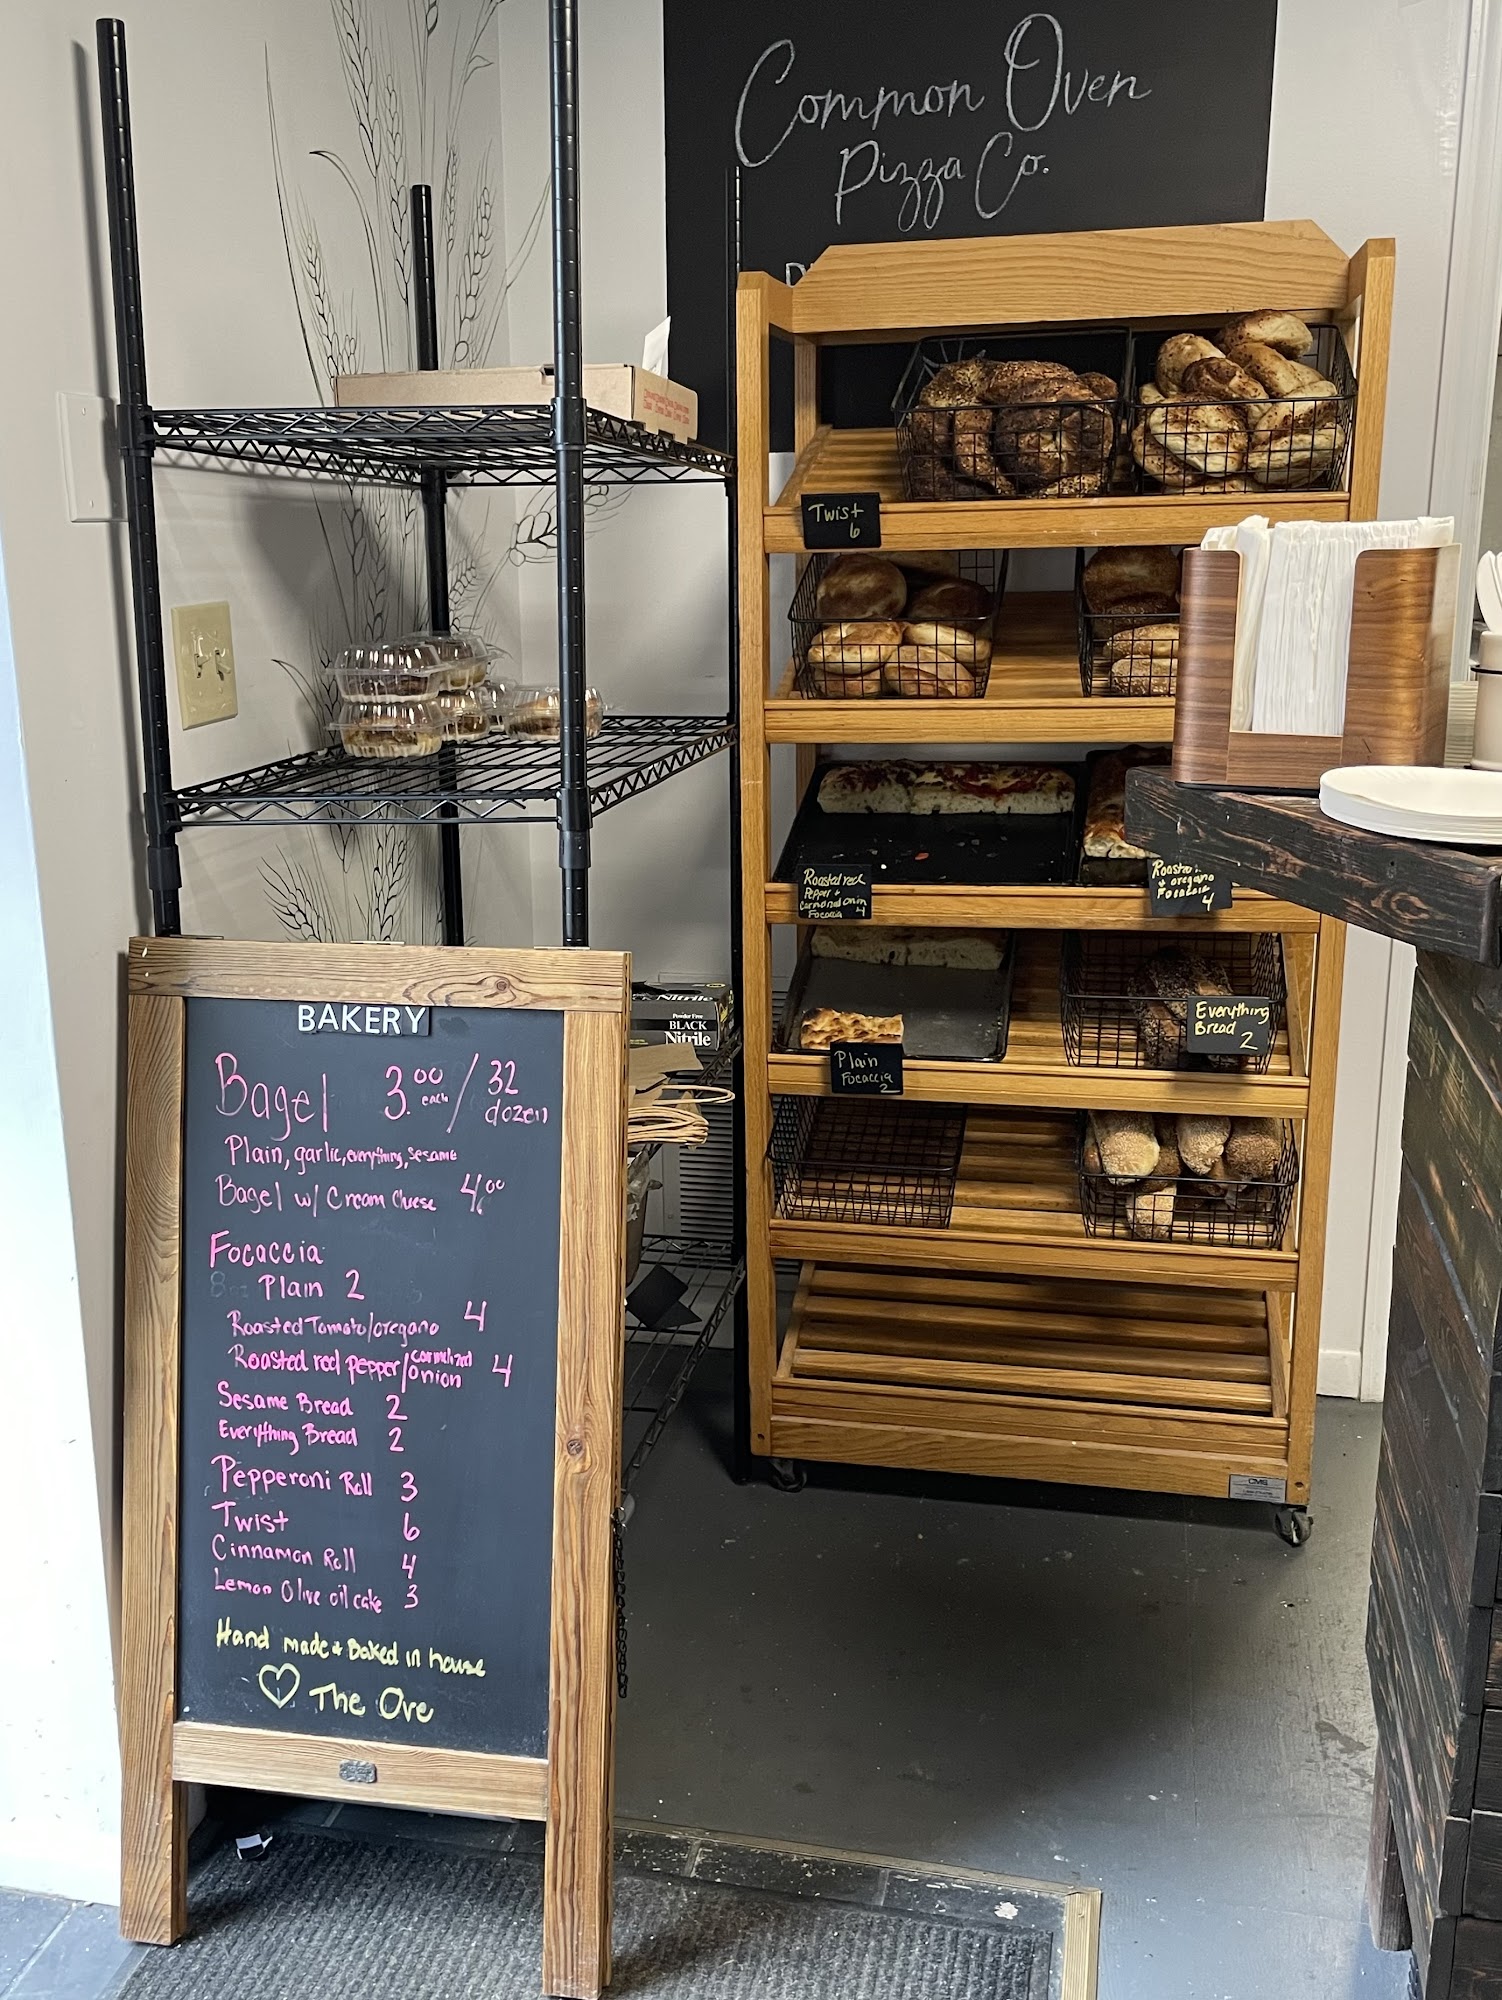 Common Oven
Pizza Co.
Twist
6
Roasted red
Pepper +
Caramelized onion
Focaccia 4
Roasted
+ oregano
Focaccia
4
Everything
Bread
2
Plain
Focaccia
2
Nitrile
Powder Free
BLACK
Nitrile
BAKERY
Bagel 3.00 each / 32 dozen
Plain, garlic, everything, sesame
Bagel w/ Cream Cheese 4.00
Focaccia
Plain 2
Roasted Tomato/oregano 4
Roasted red pepper/ onion 4
Sesame Bread 2
Everything Bread 2
Pepperoni Roll 3
Twist 6
Cinnamon Roll 4
Lemon Olive oil cake 3
Hand made + Baked in house
The Ove
CMS